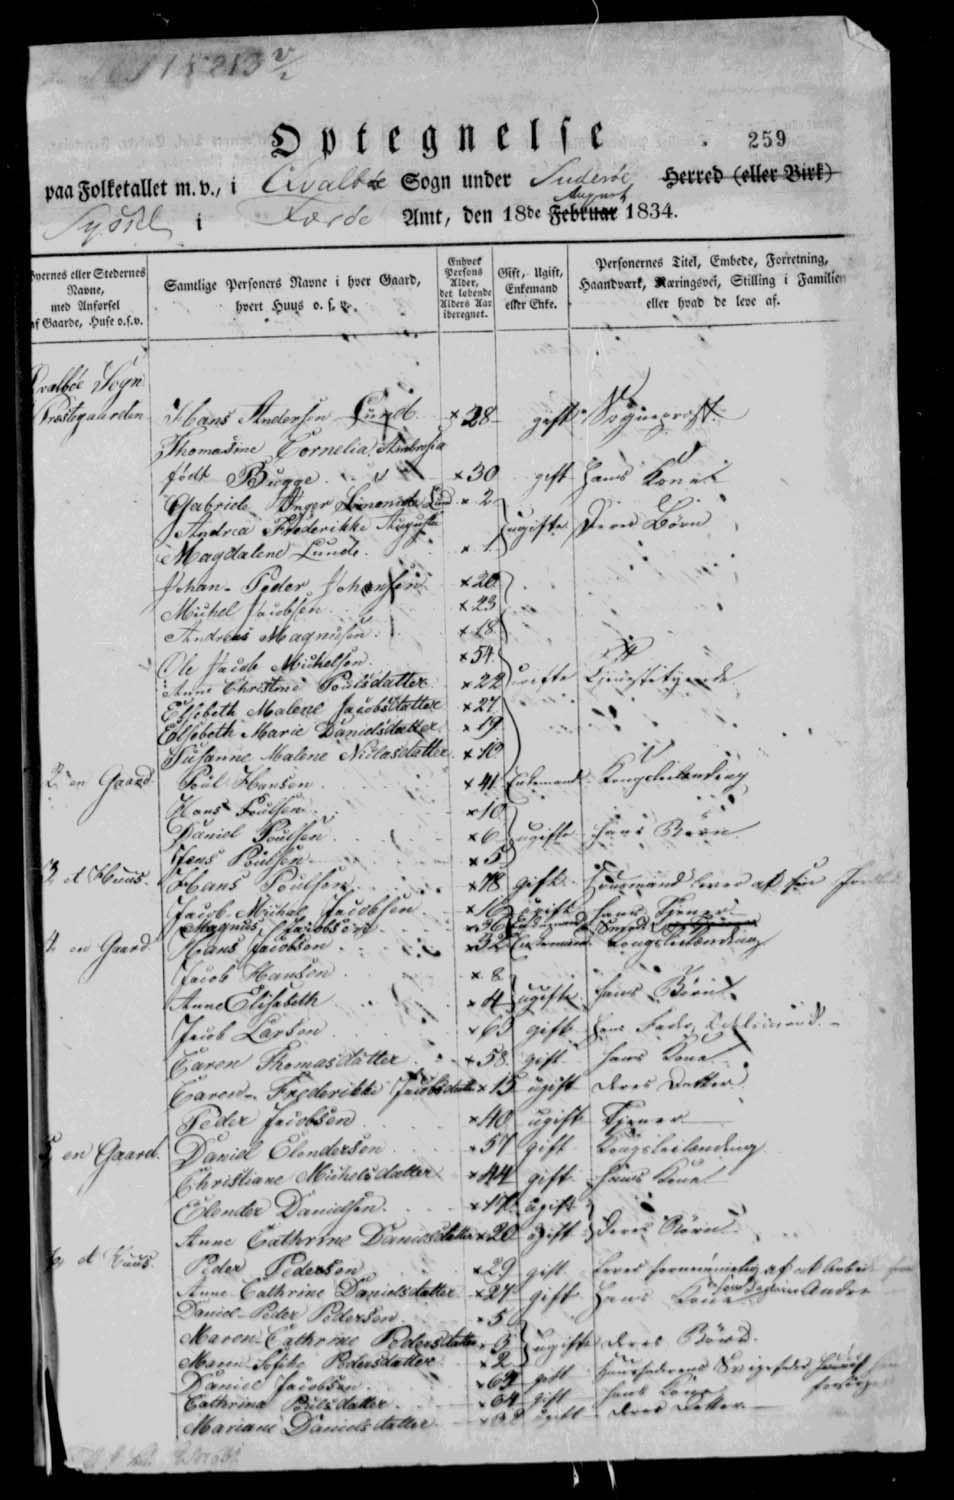 Optegnelse
259
paa Folketallet m. v., i Qvalböe Sogn under Suderöe Herred (eller Birk)
August
Sysel i Færöe Amt, den 18de Februar 1834.
Byernes eller Stedernes Navne, med Anførsel af Gaarde, Huse o.s.v.
Samtlige Personers Navne i hver Gaard, hvert Huus o. s. v.
Enhver Persons Alder, det løbende Alders Aar iberegnet.
Gift, Ugift, Enkemand eller Enke.
Personernes Titel, Embede, Forretning, Haandværk, Næringsvei, Stilling i Familien eller hvad de leve af.
Qvalböe Sogn
Præstegaarden Hans Andersen Lund × 28 gift Sognepræst
Thomasine Cornelia Ambrosia
født Bugge × 30 gift hans Kone
Gabriele Inger Lund × 2
Andrea Frederikke Augusta ugifte Deres Børn
Magdalene Lund × 1
Johan Peder Johansen × 20
Michel Jacobsen × 23
Andreas Magnusen × 18
Ole Jacob Michelsen × 54
Anne Christine Poulsdatter × 22 ugifte Tjenestetyende
Elsebeth Malene Jacobsdatter × 27
Elsebeth Marie Danielsdatter × 19
Susanne Malene Niclasdatter × 10
2, en Gaard Poul Hansen × 41 Enkemand Kongsleilænding
Hans Poulsen × 10
Daniel Poulsen × 6 ugifte hans Børn
Jens Poulsen × 5
3 et Huus Hans Poulsen × 78 gift Huusmand lever af sin
Jacob Michal Jacobsen × 16 ugift hans Tjener
Magnus Jacobsen × 36
4 en Gaard Hans Jacobsen × 32 Enkemand Kongsleilænding
Jacob Hansen × 8
Anne Elisabeth × 4 ugifte hans Børn
Jacob Larsen × 65 gift hans Fader
Caren Thomasdatter × 58 gift hans Kone
Caren Frederikke Jacobsdatter × 15 ugift deres Datter
Peder Jacobsen × 40 ugift Tjener
5, en Gaard. Daniel Elendersen × 57 gift Kongsleilænding
Christiane Michelsdatter × 44 gift hans Kone
Elender Danielsen × 17 ugift
Anne Cathrine Danielsdatter × 20 ugift Deres Børn
et Huus. Peder Pedersen × 29 gift
Anne Cathrine Danielsdatter × 27 gift hans Kone
Daniel Peder Pedersen × 5
Maren Cathrine Pedersdatter × 3 ugifte deres Børn
Maren Sofihe Pedersdatter × 2
Daniel Jacobsen gift
Cathrina Poulsdatter × 64 gift hans Kone
Mariane Danielsdatter ugift deres Datter